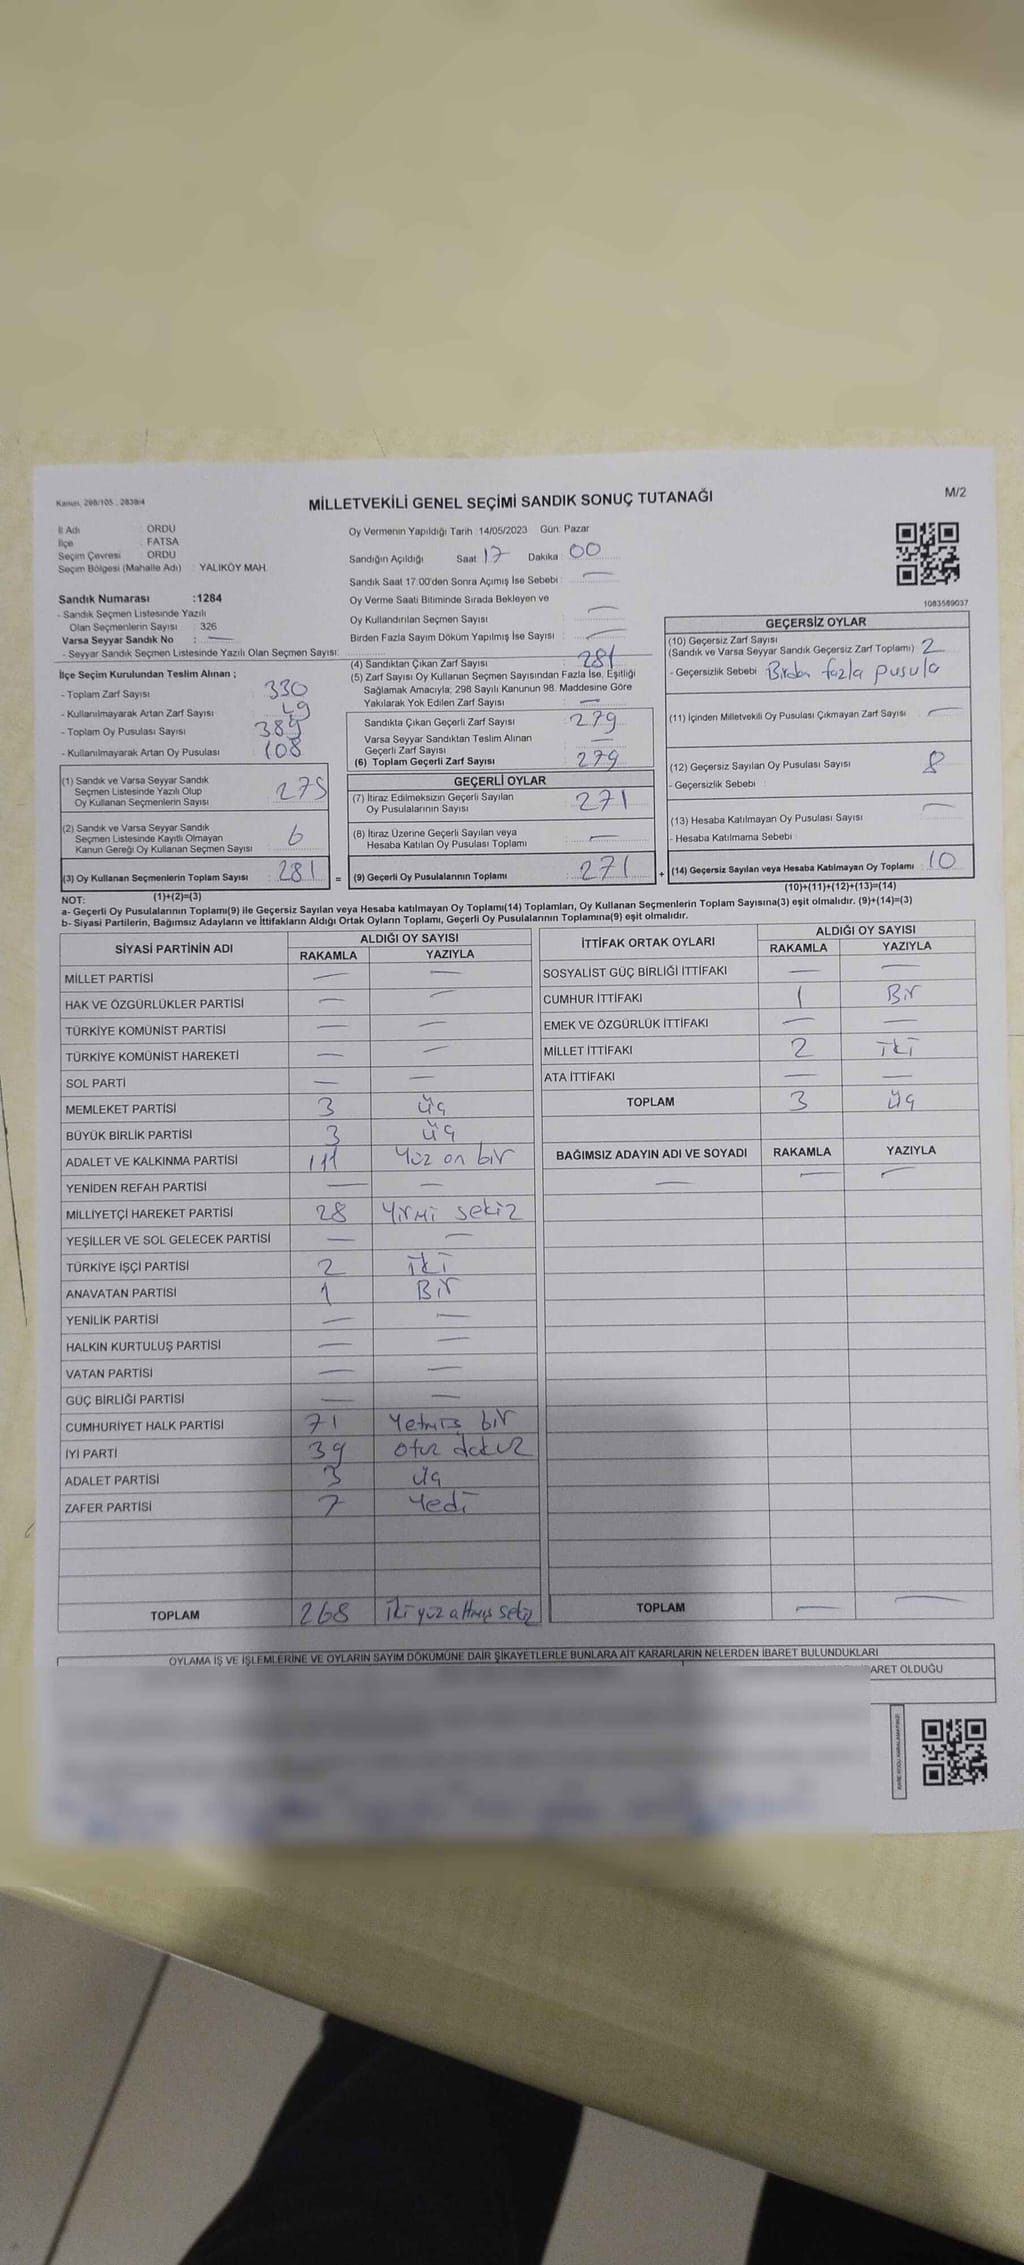 Kanun, 298/105 , 2839/4
MİLLETVEKİLİ GENEL SEÇİMİ SANDIK SONUÇ TUTANAĞI
M/2
İl Adı : ORDU
İlçe : FATSA
Seçim Çevresi : ORDU
Seçim Bölgesi (Mahalle Adı) : YALIKÖY MAH.
Sandık Numarası :1284
- Sandık Seçmen Listesinde Yazılı
Olan Seçmenlerin Sayısı : 326
Varsa Seyyar Sandık No : —
- Seyyar Sandık Seçmen Listesinde Yazılı Olan Seçmen Sayısı:
Oy Vermenin Yapıldığı Tarih :14/05/2023 Gün: Pazar
Sandığın Açıldığı Saat 17 Dakika : 00
Sandık Saat 17:00'den Sonra Açımış İse Sebebi : —
Oy Verme Saati Bitiminde Sırada Bekleyen ve
Oy Kullandırılan Seçmen Sayısı : —
Birden Fazla Sayım Döküm Yapılmış İse Sayısı : —
1083589037
İlçe Seçim Kurulundan Teslim Alınan ;
- Toplam Zarf Sayısı : 330
- Kullanılmayarak Artan Zarf Sayısı : 49
- Toplam Oy Pusulası Sayısı : 389
- Kullanılmayarak Artan Oy Pusulası : 108
(1) Sandık ve Varsa Seyyar Sandık
Seçmen Listesinde Yazılı Olup
Oy Kullanan Seçmenlerin Sayısı : 275
(2) Sandık ve Varsa Seyyar Sandık
Seçmen Listesinde Kayıtlı Olmayan
Kanun Gereği Oy Kullanan Seçmen Sayısı : 6
(3) Oy Kullanan Seçmenlerin Toplam Sayısı : 281 =
(1)+(2)=(3)
(4) Sandıktan Çıkan Zarf Sayısı : 281
(5) Zarf Sayısı Oy Kullanan Seçmen Sayısından Fazla İse, Eşitliği
Sağlamak Amacıyla; 298 Sayılı Kanunun 98. Maddesine Göre
Yakılarak Yok Edilen Zarf Sayısı : —
Sandıkta Çıkan Geçerli Zarf Sayısı : 279
Varsa Seyyar Sandıktan Teslim Alınan
Geçerli Zarf Sayısı : —
(6) Toplam Geçerli Zarf Sayısı : 279
GEÇERLİ OYLAR
(7) İtiraz Edilmeksizin Geçerli Sayılan
Oy Pusulalarının Sayısı : 271
(8) İtiraz Üzerine Geçerli Sayılan veya
Hesaba Katılan Oy Pusulası Toplamı : —
(9) Geçerli Oy Pusulalarının Toplamı : 271 +
GEÇERSİZ OYLAR
(10) Geçersiz Zarf Sayısı
(Sandık ve Varsa Seyyar Sandık Geçersiz Zarf Toplamı) : 2
- Geçersizlik Sebebi : Birden fazla pusula
(11) İçinden Milletvekili Oy Pusulası Çıkmayan Zarf Sayısı : —
(12) Geçersiz Sayılan Oy Pusulası Sayısı : 8
- Geçersizlik Sebebi :
(13) Hesaba Katılmayan Oy Pusulası Sayısı : —
- Hesaba Katılmama Sebebi :
(14) Geçersiz Sayılan veya Hesaba Katılmayan Oy Toplamı : 10
(10)+(11)+(12)+(13)=(14)
NOT:
a- Geçerli Oy Pusulalarının Toplamı(9) ile Geçersiz Sayılan veya Hesaba katılmayan Oy Toplamı(14) Toplamları, Oy Kullanan Seçmenlerin Toplam Sayısına(3) eşit olmalıdır. (9)+(14)=(3)
b- Siyasi Partilerin, Bağımsız Adayların ve İttifakların Aldığı Ortak Oyların Toplamı, Geçerli Oy Pusulalarının Toplamına(9) eşit olmalıdır.
SİYASİ PARTİNİN ADI ALDIĞI OY SAYISI
RAKAMLA YAZIYLA
MİLLET PARTİSİ — —
HAK VE ÖZGÜRLÜKLER PARTİSİ — —
TÜRKİYE KOMÜNİST PARTİSİ — —
TÜRKİYE KOMÜNİST HAREKETİ — —
SOL PARTİ — —
MEMLEKET PARTİSİ 3 üç
BÜYÜK BİRLİK PARTİSİ 3 üç
ADALET VE KALKINMA PARTİSİ 111 Yüz on bir
YENİDEN REFAH PARTİSİ — —
MİLLİYETÇİ HAREKET PARTİSİ 28 Yirmi sekiz
YEŞİLLER VE SOL GELECEK PARTİSİ — —
TÜRKİYE İŞÇİ PARTİSİ 2 iki
ANAVATAN PARTİSİ 1 Bir
YENİLİK PARTİSİ — —
HALKIN KURTULUŞ PARTİSİ — —
VATAN PARTİSİ — —
GÜÇ BİRLİĞİ PARTİSİ — —
CUMHURİYET HALK PARTİSİ 71 Yetmiş bir
İYİ PARTİ 39 otuz dokuz
ADALET PARTİSİ 3 üç
ZAFER PARTİSİ 7 Yedi
TOPLAM 268 iki yüz altmış sekiz
İTTİFAK ORTAK OYLARI ALDIĞI OY SAYISI
RAKAMLA YAZIYLA
SOSYALİST GÜÇ BİRLİĞİ İTTİFAKI — —
CUMHUR İTTİFAKI 1 Bir
EMEK VE ÖZGÜRLÜK İTTİFAKI — —
MİLLET İTTİFAKI 2 iki
ATA İTTİFAKI — —
TOPLAM 3 üç
BAĞIMSIZ ADAYIN ADI VE SOYADI RAKAMLA YAZIYLA
— — —
TOPLAM — —
OYLAMA İŞ VE İŞLEMLERİNE VE OYLARIN SAYIM DÖKÜMÜNE DAİR ŞİKAYETLERLE BUNLARA AİT KARARLARIN NELERDEN İBARET BULUNDUKLARI
BARET OLDUĞU